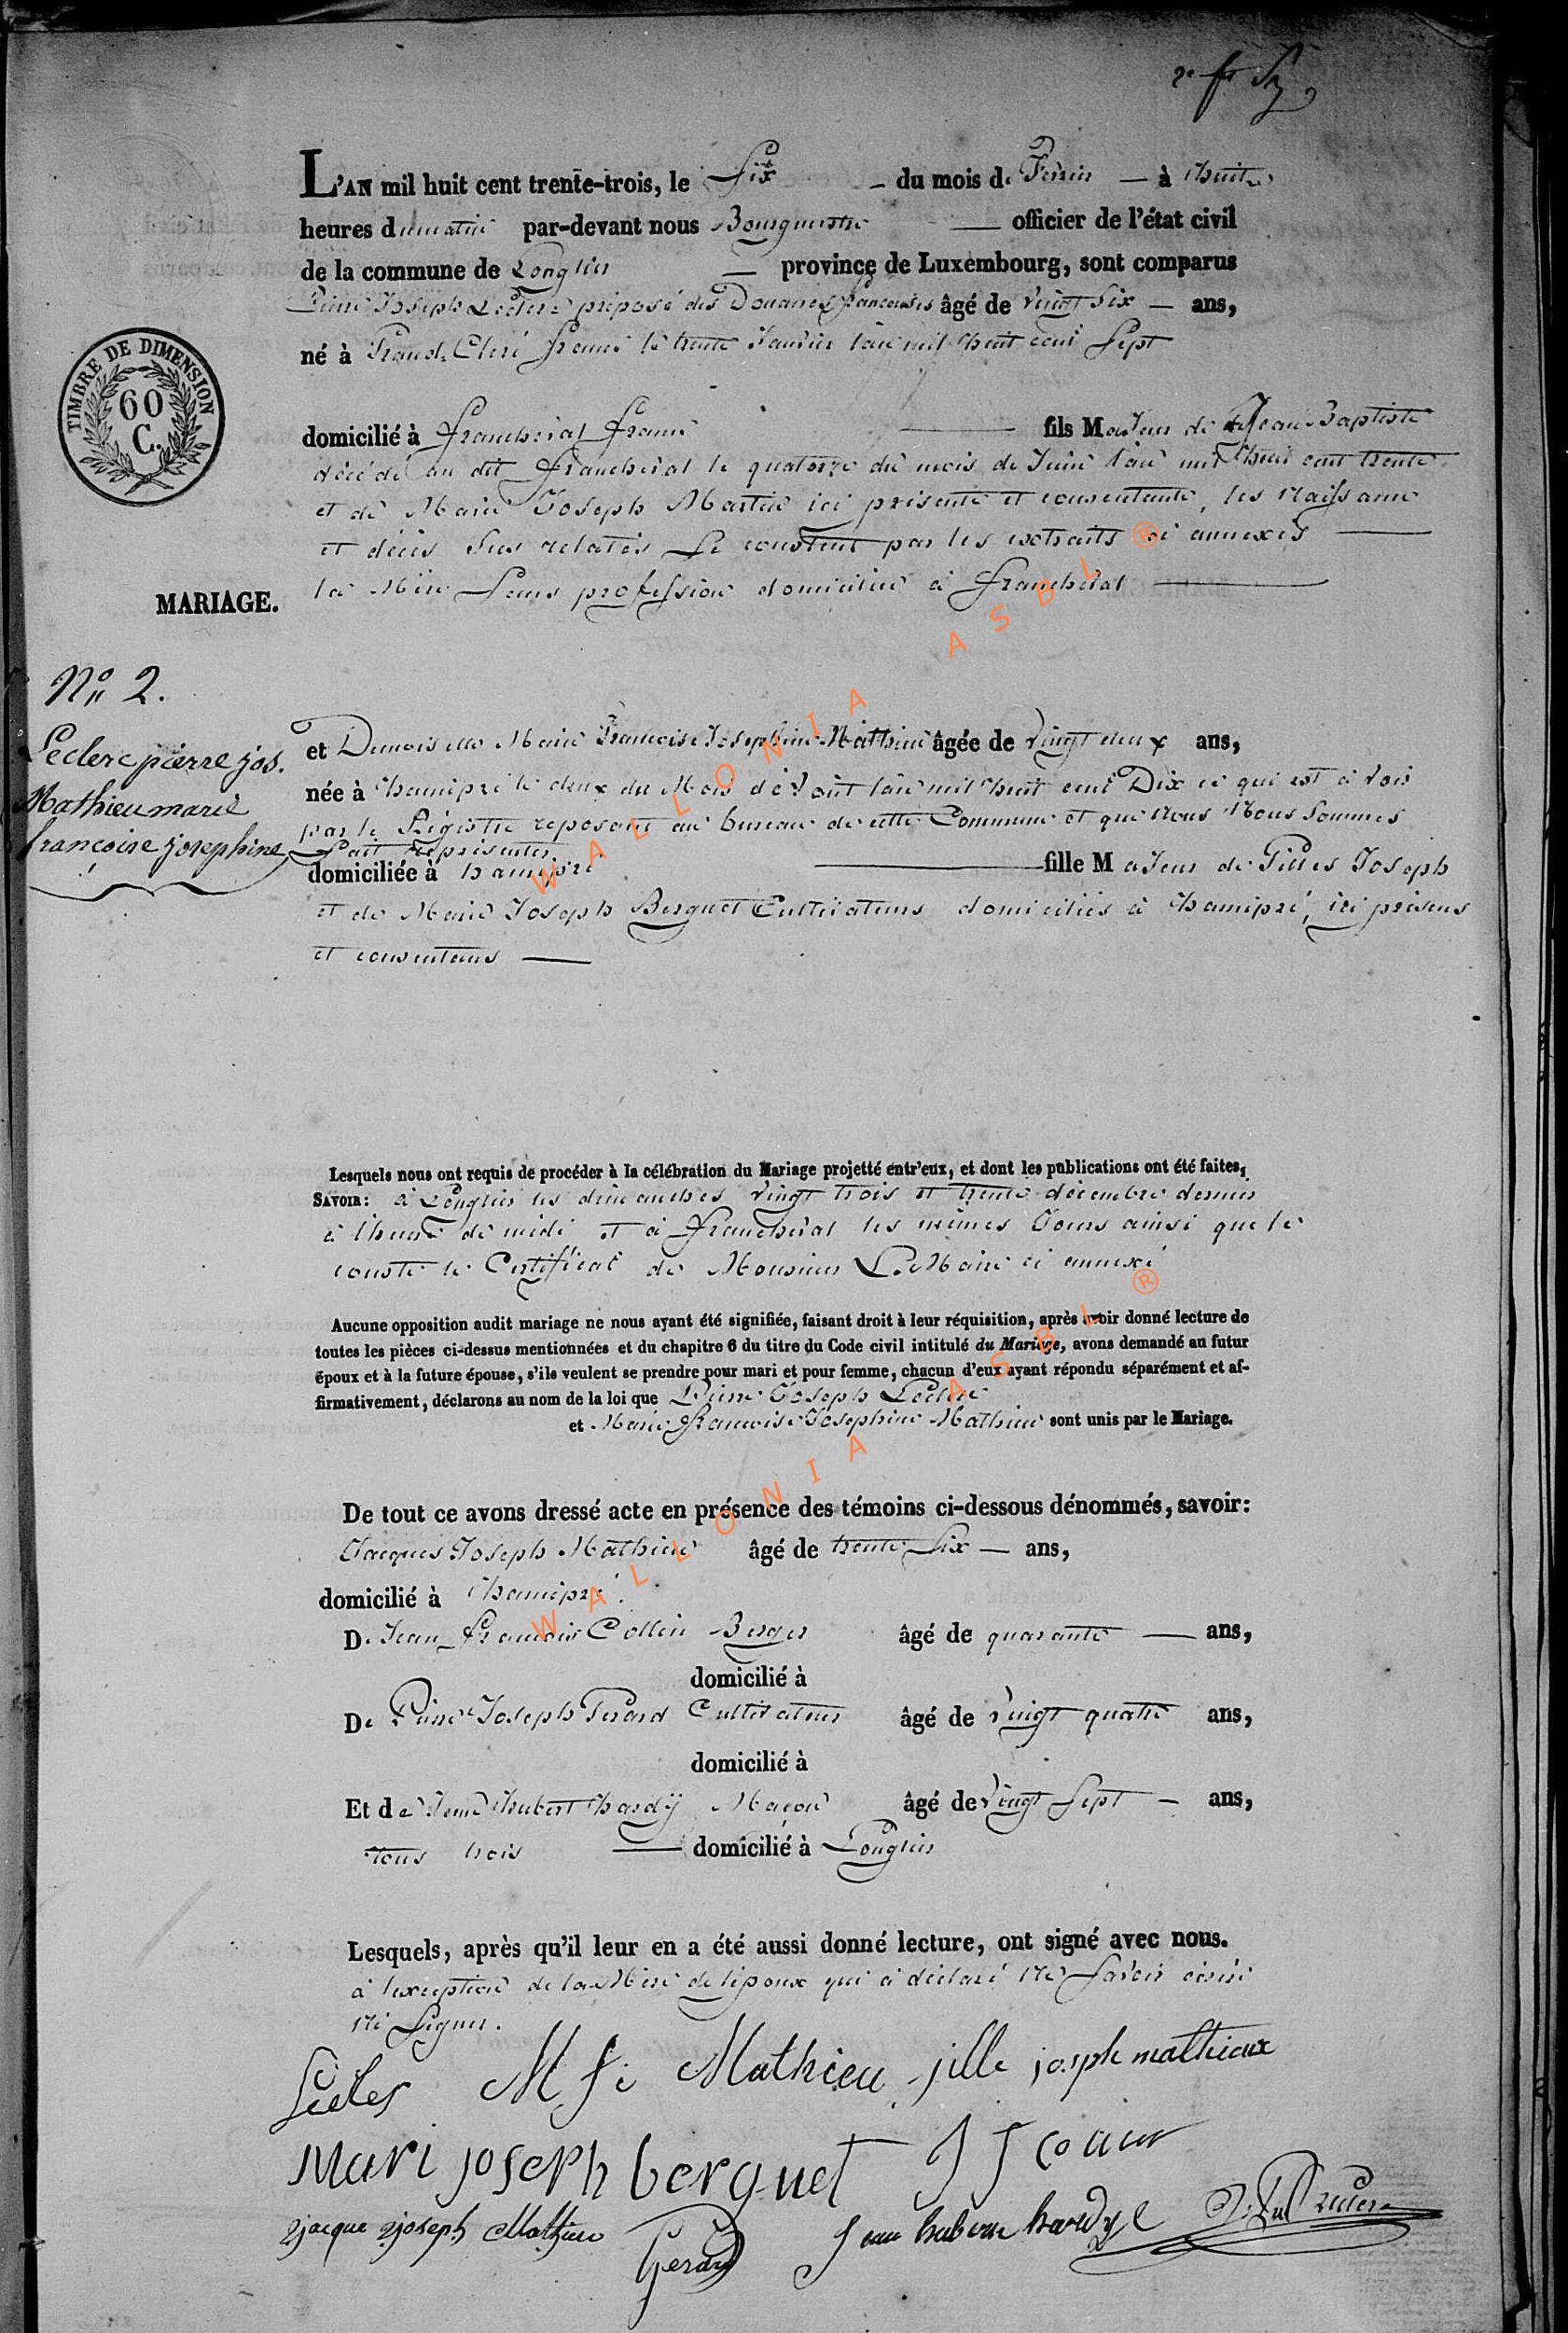 L'AN mil huit cent trente-trois, le Six du mois de Février à huit
heures du matin par-devant nous Bourguestre officier de l'état civil
de la commune de Longlier province de Luxembourg, sont comparus
Pierre Joseph Leclerc préposé des Douanes francaises âgé de vingt Six ans,
né à france le trente Janvier l'an mil huit cent Sept
TIMBRE DE DIMENSION
60
C.
domicilié à francheval france fils Majeur de Jean Baptiste
décédé au dit francheval le quatorze du mois de Juin l'an mil huit cent trente
et de Marie Joseph Martin ici présente et consentante, les Naissance
et décès Sus relatés Se constent par les extraits ci annexés
la Mère Sans profession domiciliée à francheval
MARIAGE.
N° 2.
Leclerc pierre jos.
Mathieu marie
francoise josephine
et Demoiselle Marie Francoise Josephine Mathieu âgée de vingt deux ans,
née à hamipré le deux du Mois d'Août l'an mil huit cent Dix ce qui est à voir
par le Régistre reposant au bureau de cette Commune et que Nous Nous Sommes
Fait représenter
domiciliée à hamipré fille Majeur de Gilles Joseph
et de Marie Joseph Berguet Cultivateurs domiciliés à hamipré, ici présens
et consentans
Lesquels nous ont requis de procéder à la célébration du Mariage projetté entr'eux, et dont les publications ont été faites,
SAVOIR: à Longlier les dimanches vingt trois et trente décembre dernier
à l'heure de midi et à francheval les mêmes Jours ainsi que le
conste le Certificat de Monsieur Le Maire ci annexé
Aucune opposition audit mariage ne nous ayant été signifiée, faisant droit à leur réquisition, après avoir donné lecture de
toutes les pièces ci-dessus mentionnées et du chapitre 6 du titre du Code civil intitulé du Mariage, avons demandé au futur
époux et à la future épouse, s'ils veulent se prendre pour mari et pour femme, chacun d'eux ayant répondu séparément et af-
firmativement, déclarons au nom de la loi que Pierre Joseph Leclerc
et Marie francoise Josephine Mathieu sont unis par le Mariage.
De tout ce avons dressé acte en présence des témoins ci-dessous dénommés, savoir:
Jacques Joseph Mathieu âgé de trente Six ans,
domicilié à hamipré.
De Jean francois Collin Berger âgé de quarante ans,
domicilié à
De Pierre Joseph Gerard Cultivateur âgé de vingt quatre ans,
domicilié à
Et de Jean hubert hardÿ Maçon âgé de vingt Sept ans,
tous trois domicilié à Longlier
Lesquels, après qu'il leur en a été aussi donné lecture, ont signé avec nous.
à l'exception de la Mère de l'époux qui a déclaré Ne Savoir écrire
Ni Signer.
Mathieu jille joseph mathieux
Mari joseph berguet
jacque joseph Mathieu Gerard Jean hubert hardy
WALLONIA ASBL ®
WALLONIA ASBL ®